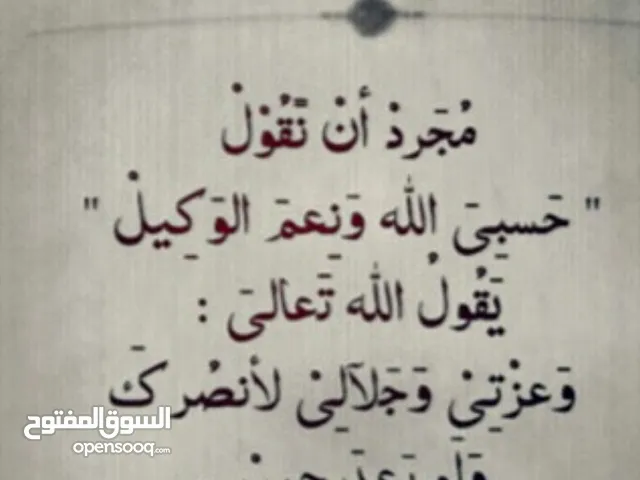 مُجَردْ أنْ نَّقُوْلْ
" حَسبِيَ الله وَنِعمَ الوَكِيلْ "
يَقُولُ الله تَعالىَ :
وَعزْتِيْ وَجَلآلِيْ لأنصُركَ
السوق المفتوح
opensooq.com